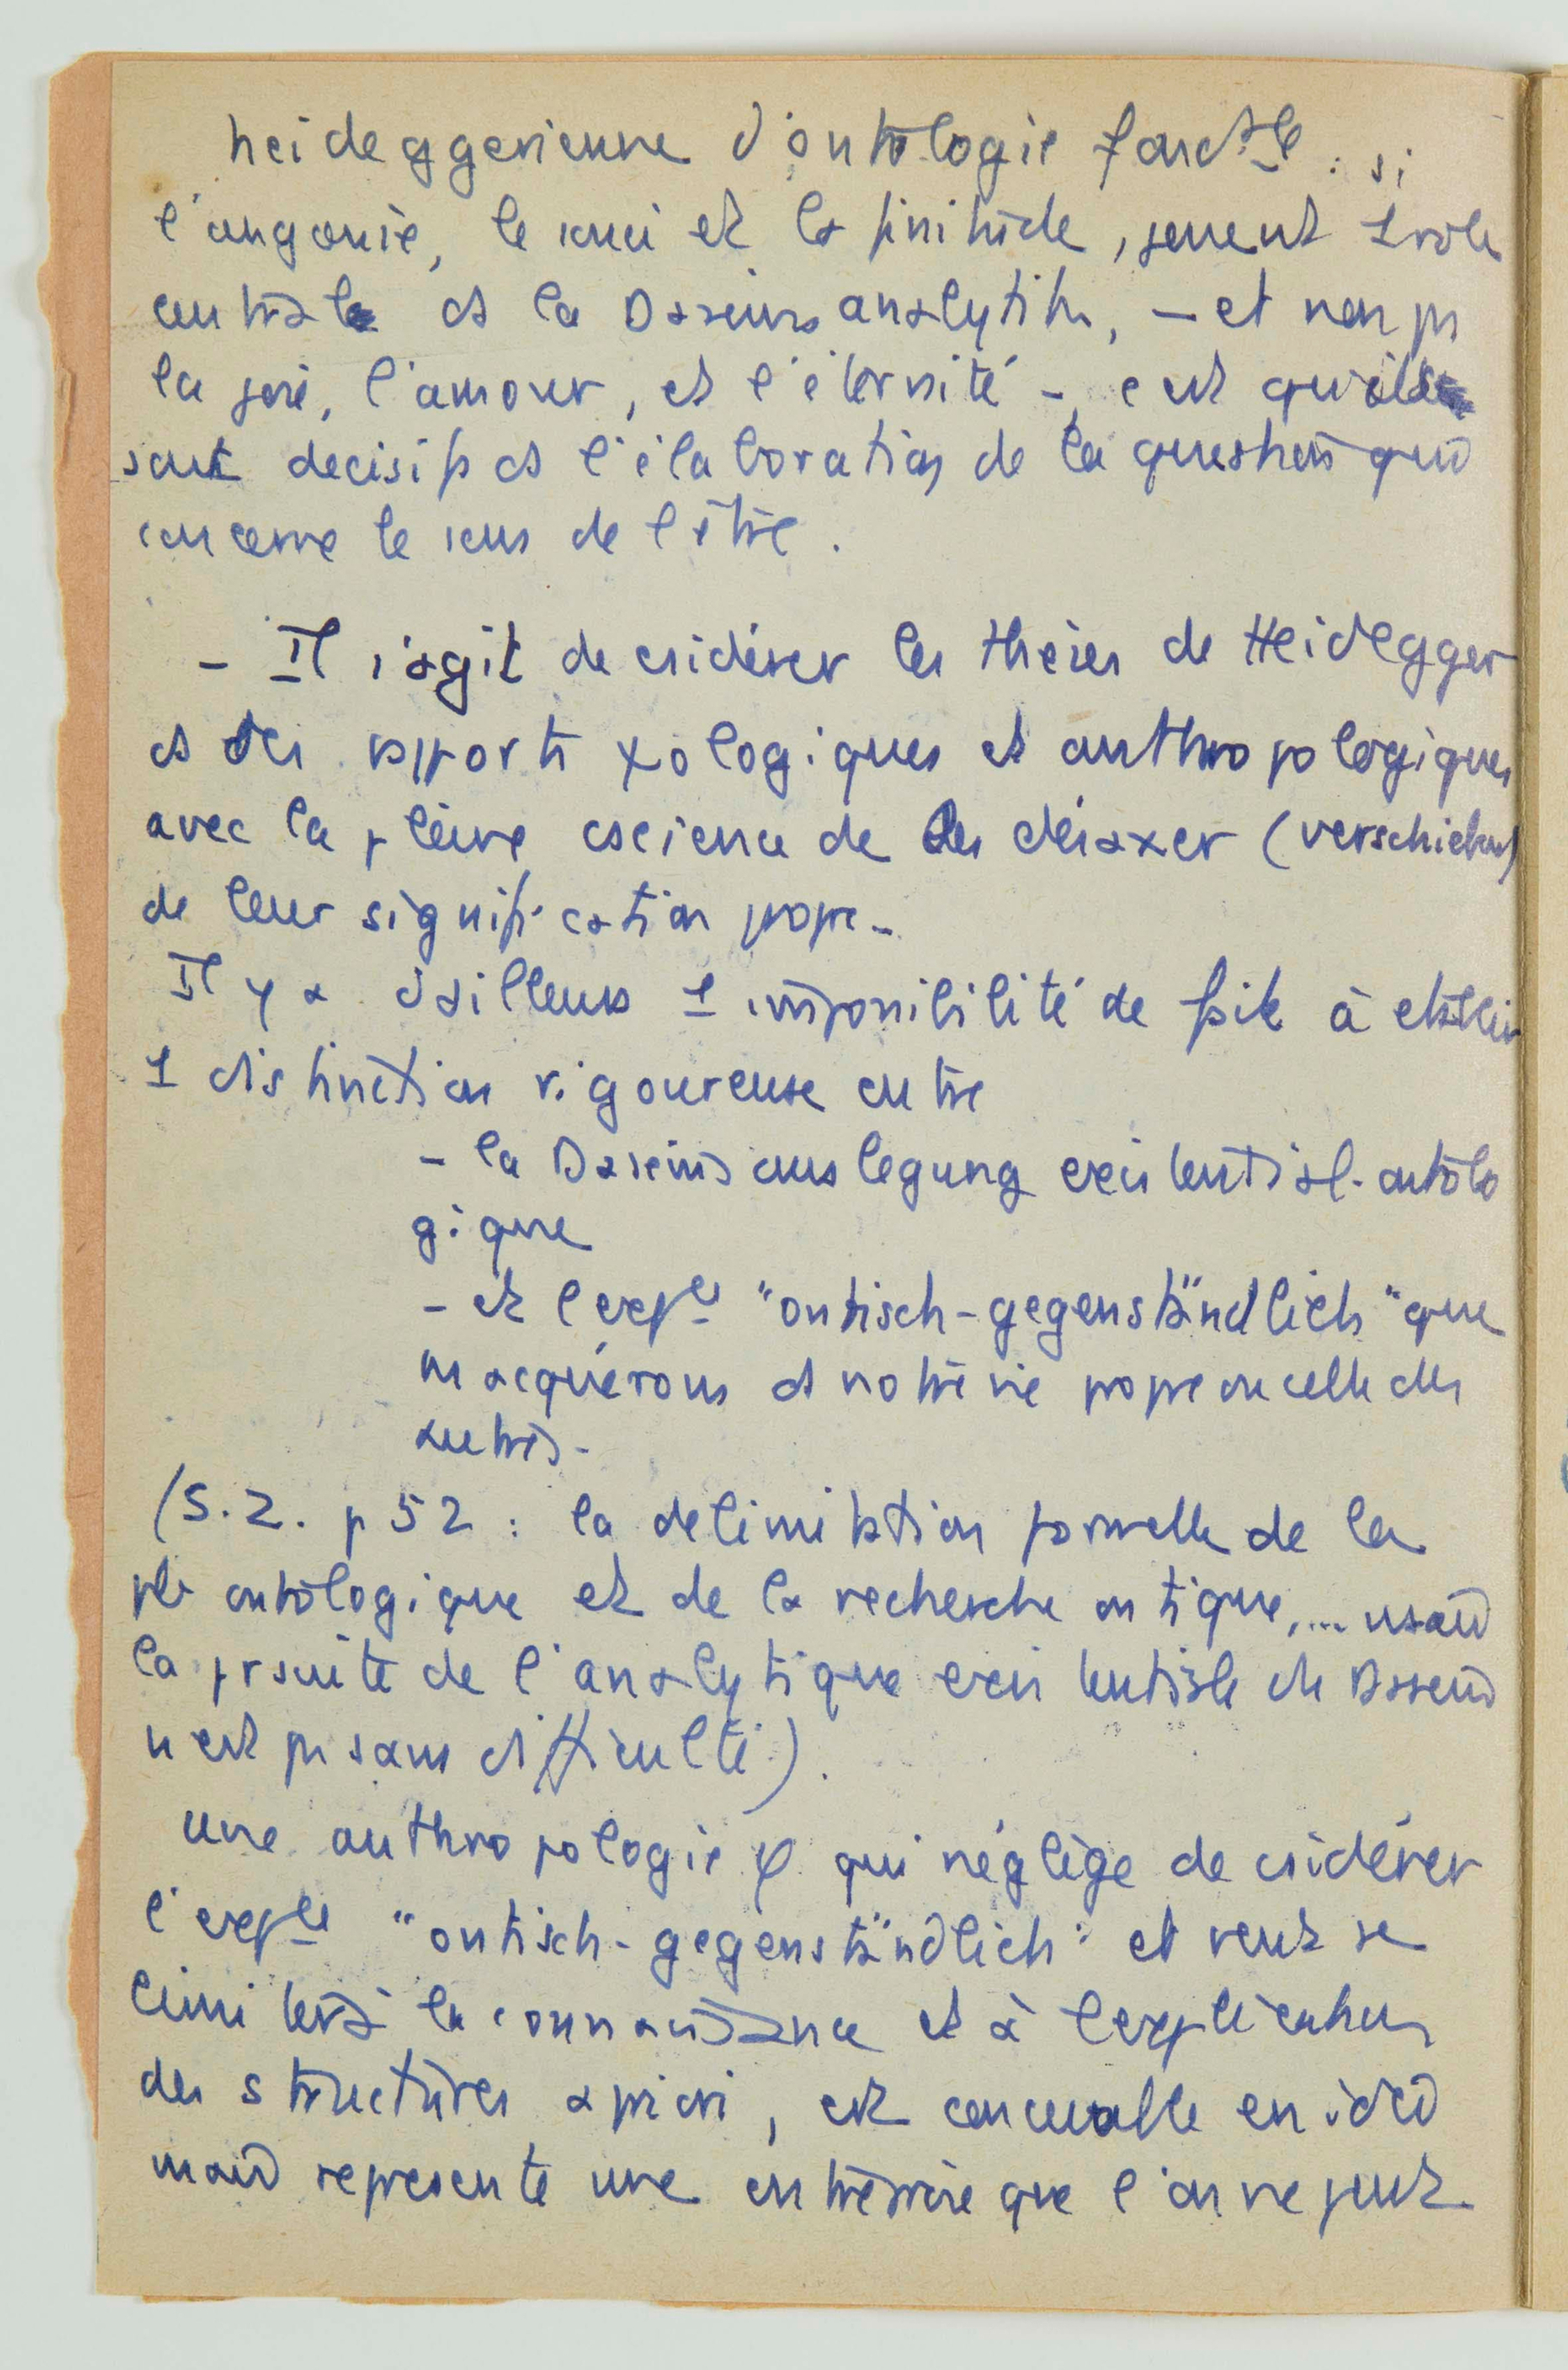 heideggerienne d'ontologie fondale : si
l'angoisse, le souci et la finitude, jouent 1 role
centrale ds la Daseinsanalytik, – et non pas
la joie, l'amour, et l'éternité –, c'est qu'ils
sont decisifs ds l'élaboration de la question qui
concerne le sens de l'être.
– Il s'agit de csidérer les thèses de Heidegger
ds des rapports ψologiques et anthropologiques
avec la pleine cscience de les désaxer (verschieben)
de leur signification propre –
Il y a d'ailleurs 1 impossibilité de fait à établir
1 distinction rigoureuse entre
– la Daseinsauslegung existential-ontolo
gique
– et l'expce "ontisch-gegenständlich" que
ns acquérons ds notre vie propre ou celle des
autres –
(S.Z. p 52 : la delimitation formelle de la
ontologique et de la recherche ontique, ...
la prsuite de l'analytique existentiale du Dasein
n'est pas sans difficulté).
une anthropologie φ qui néglige de csidérer
l'expce "ontisch-gegenständlich" et veut se
limiter à la connaissance et à l'explication
des structures a priori, est concevable en idée
mais represente une entreprise que l'on ne peut